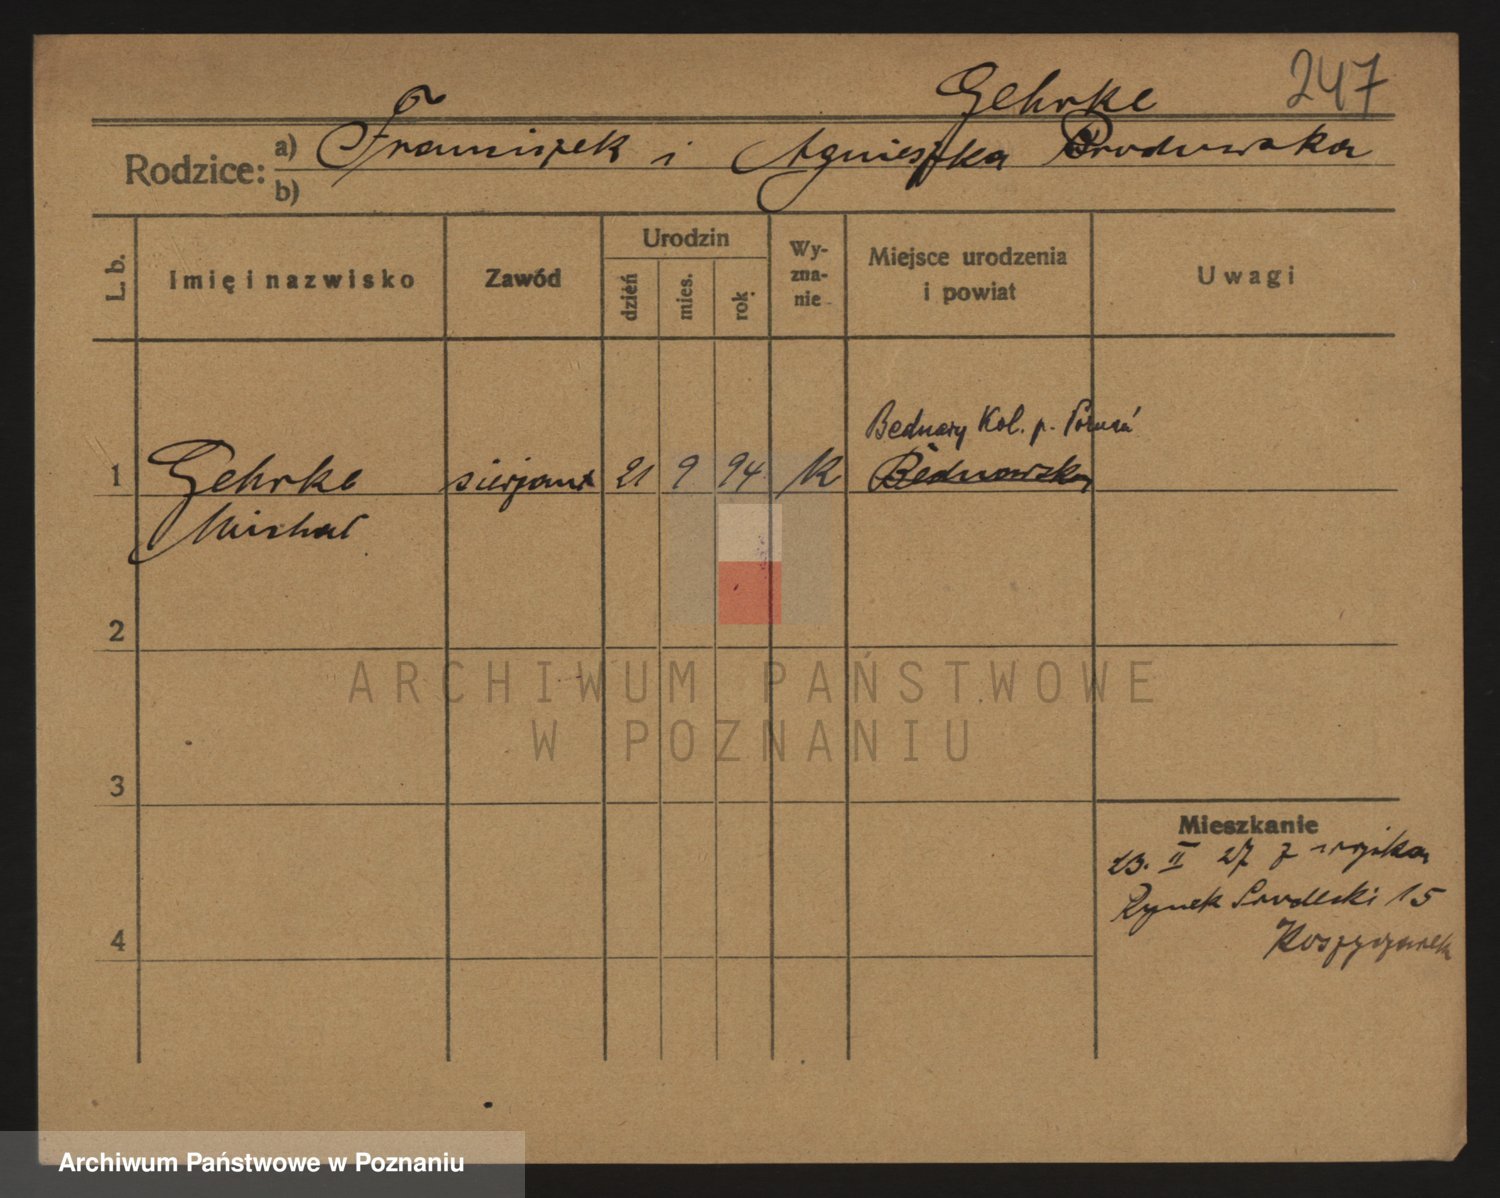 Gehrke 247
Rodzice: a) Franciszek i Agnieszka
b)
L. b.
Imię i nazwisko
Zawód
Urodzin
dzień
mies.
rok
Wy-
zna-
nie
Miejsce urodzenia
i powiat
Uwagi
Bednary Kol. p.
1 Gehrke sierżant 21 9 94 K
Michał
2
3
4
Mieszkanie
23. II 27 z wojska
Rynek Śrudecki 15
ARCHIWUM PAŃSTWOWE
W POZNANIU
Archiwum Państwowe w Poznaniu